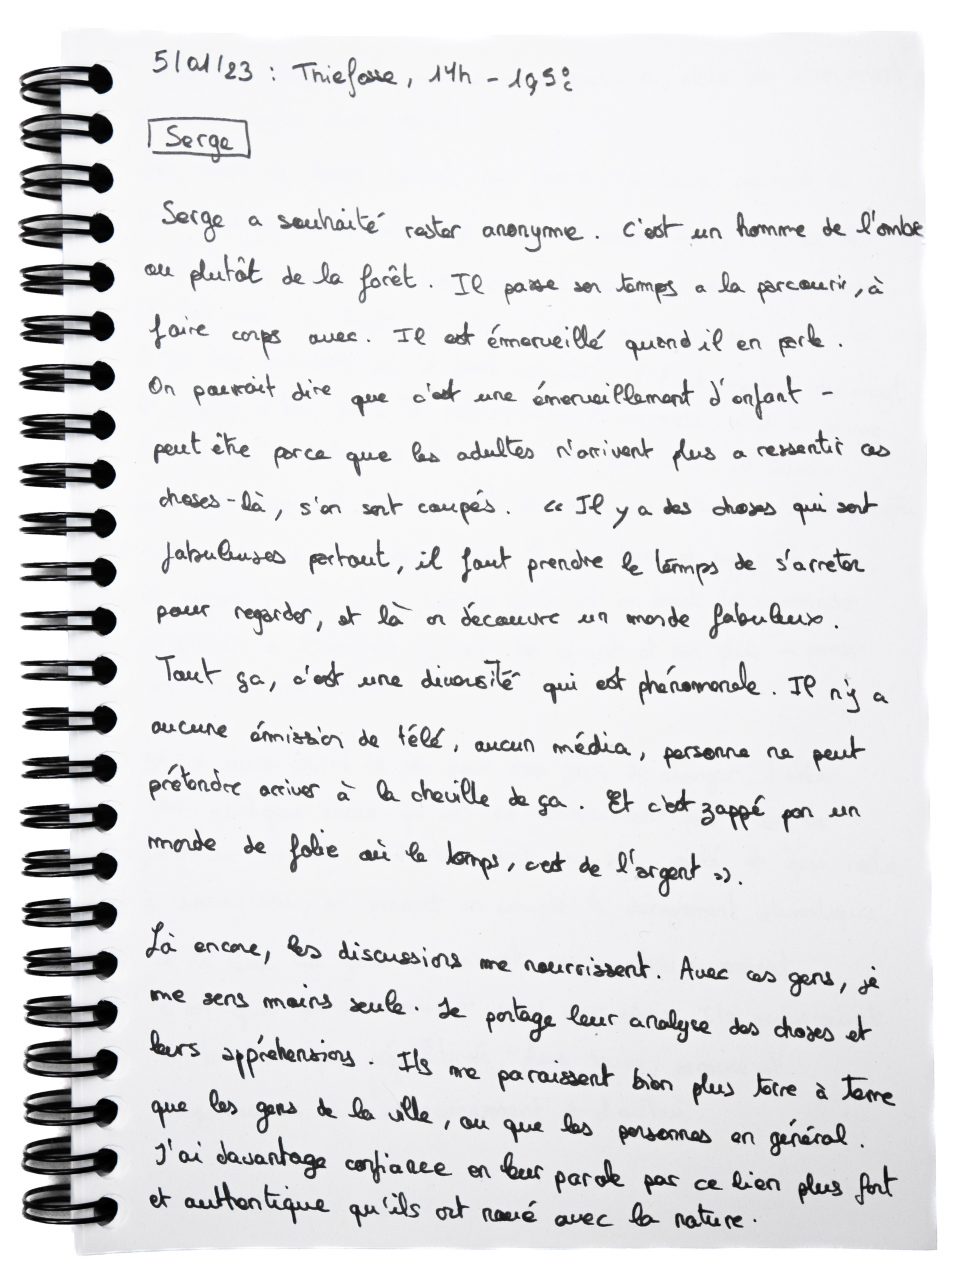 5/01/23 : Thiefosse, 14h - 19,5°c
Serge
Serge a souhaité rester anonyme. C'est un homme de l'ombre
ou plutôt de la forêt. Il passe son temps a la parcourir, à
faire corps avec. Il est émerveillé quand il en parle.
On pourrait dire que c'est une émerveillement d'enfant -
peut être parce que les adultes n'arrivent plus a ressentir ces
choses-là, s'en sont coupés. « Il y a des choses qui sont
fabuleuses partout, il faut prendre le temps de s'arreter
pour regarder, et là on découvre un monde fabuleux.
Tout ça, c'est une diversité qui est phénoménale. Il n'y a
aucune émission de télé, aucun média, personne ne peut
prétendre arriver à la cheville de ça. Et c'est zappé par un
monde de folie où le temps, c'est de l'argent ».
Là encore, les discussions me nourrissent. Avec ces gens, je
me sens moins seule. Je partage leur analyse des choses et
leurs appréhensions. Ils me paraissent bien plus terre à terre
que les gens de la ville, ou que les personnes en général.
J'ai davantage confiance en leur parole par ce lien plus fort
et authentique qu'ils ont noué avec la nature.